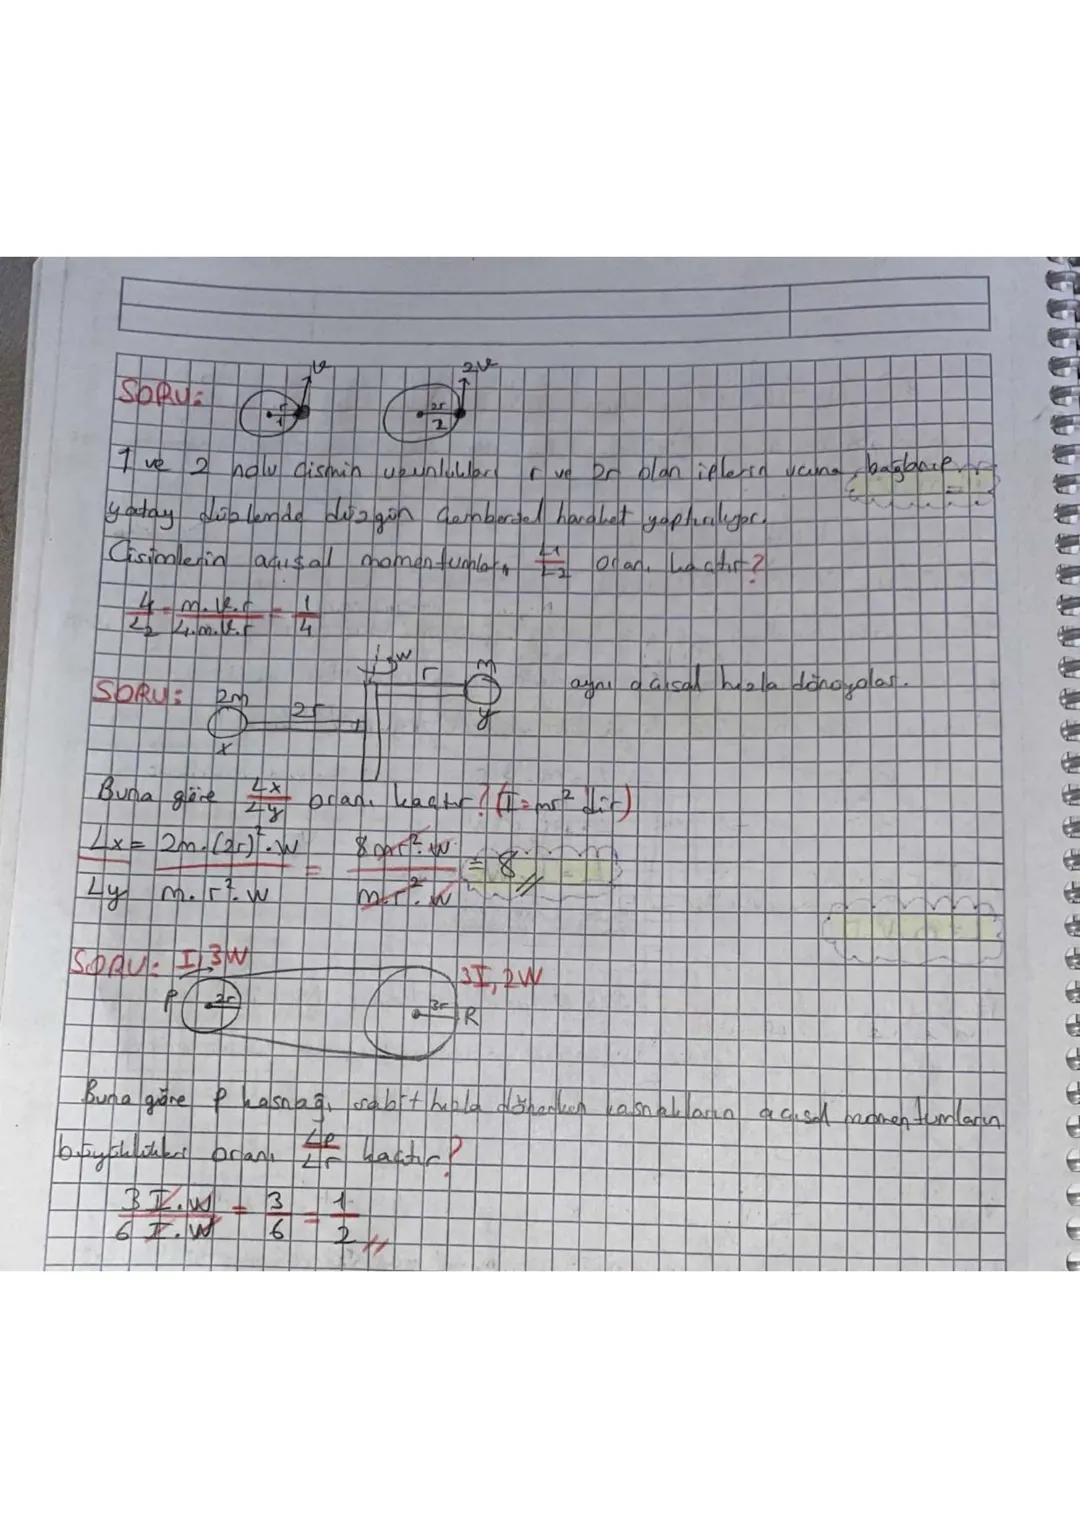 v 2v
SORU: r 1 2r 2
1 ve 2 nolu cismin uzunlukları r ve 2r olan iplerin ucuna bağlanıp
yatay düzlemde düzgün çembersel hareket yaptırılıyor.
Cisimlerin açısal momentumları L1/L2 oranı kaçtır?
L1/L2 = m.v.r/4.m.v.r = 1/4
SORU: 2m 2r x w r m y aynı açısal hızla dönüyolar.
Buna göre Lx/Ly oranı kaçtır? (I=mr² dir)
Lx/Ly = 2m.(2r)².w/m.r².w = 8mr².w/m.r².w = 8
SORU: I, 3W 3I, 2W
P 2r 3r R
Buna göre P kasnağı sabit hızla dönerken kasnakların açısal momentumların
büyüklükleri oranı Lp/Lr kaçtır?
3I.W/6I.W = 3/6 = 1/2